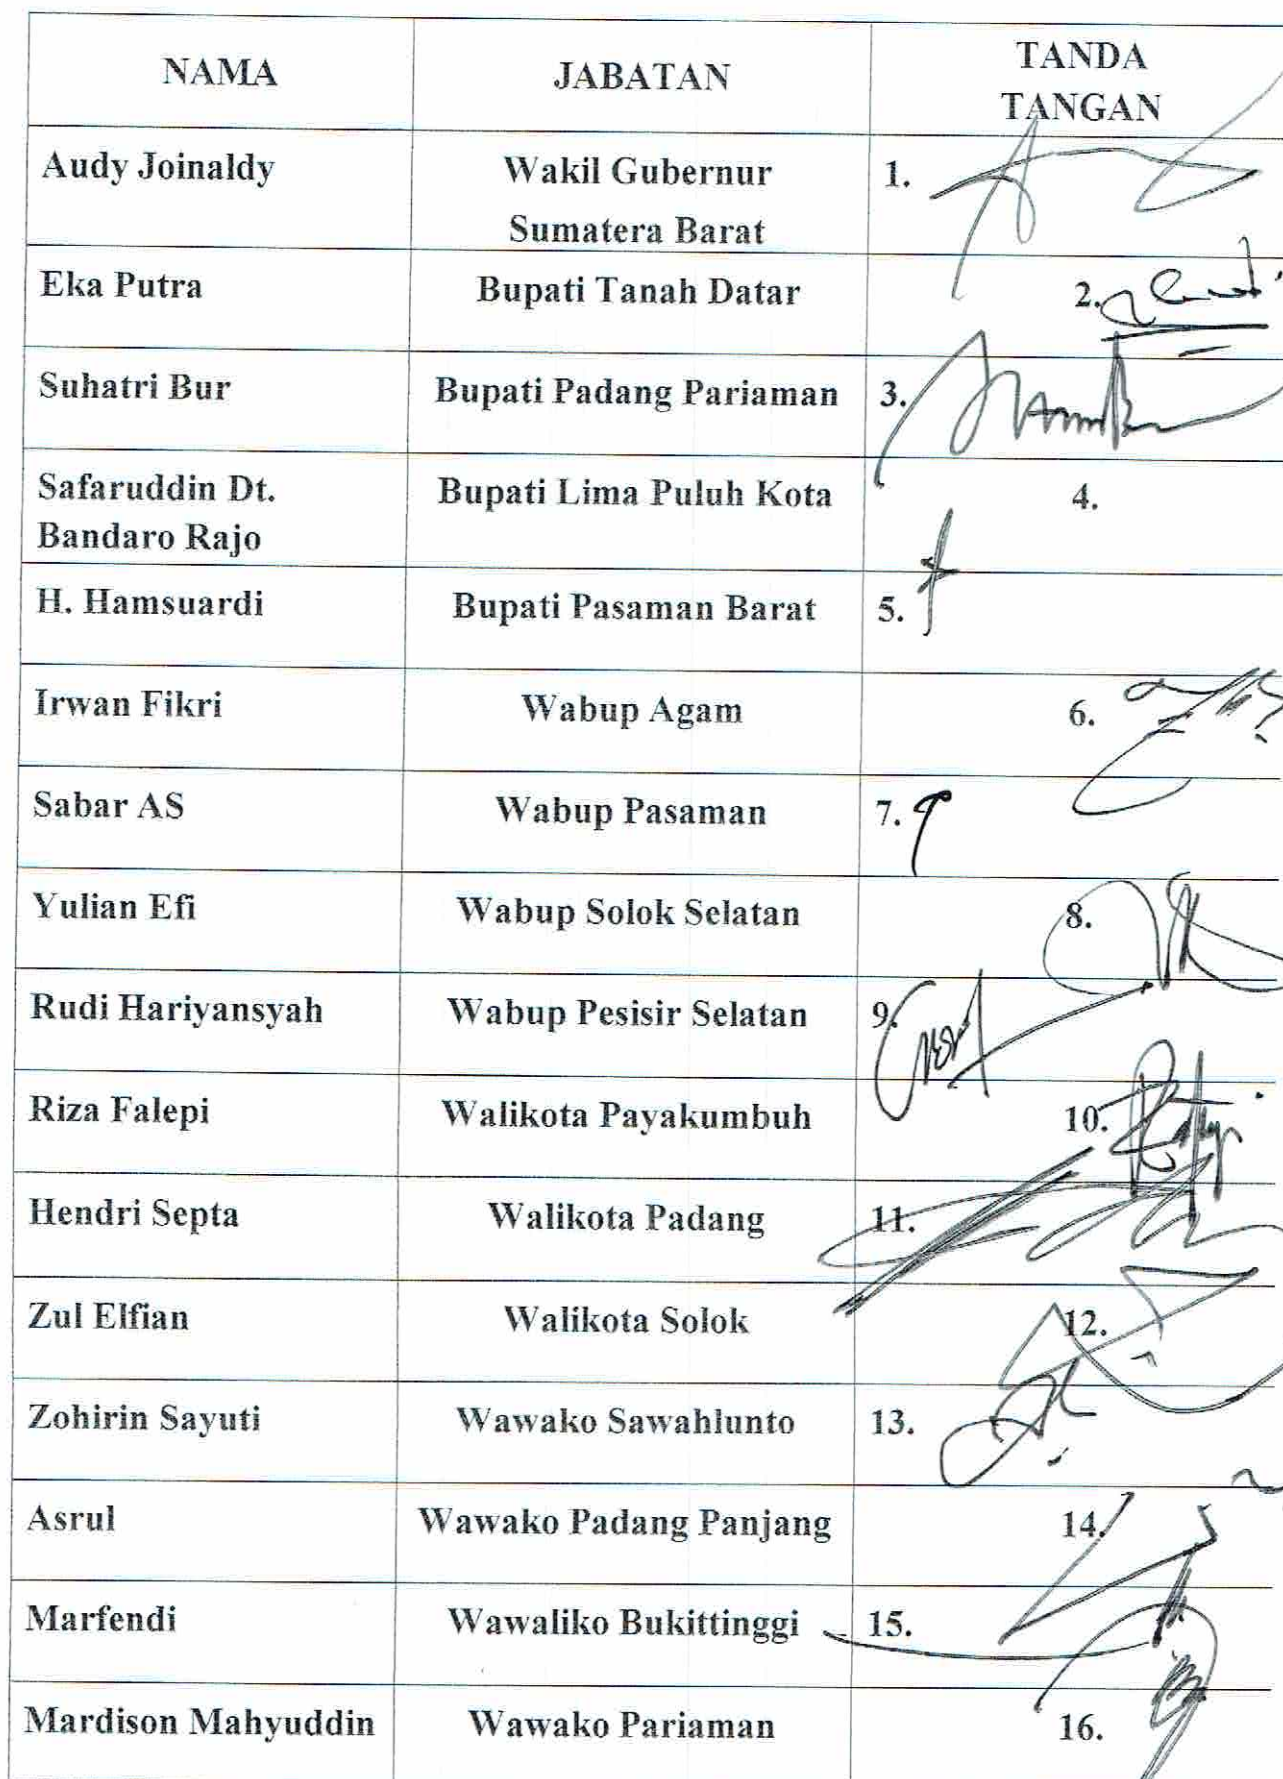 NAMA JABATAN TANDA
TANGAN
Audy Joinaldy Wakil Gubernur 1.
Sumatera Barat
Eka Putra Bupati Tanah Datar 2.
Suhatri Bur Bupati Padang Pariaman 3.
Safaruddin Dt. Bupati Lima Puluh Kota 4.
Bandaro Rajo
H. Hamsuardi Bupati Pasaman Barat 5.
Irwan Fikri Wabup Agam 6.
Sabar AS Wabup Pasaman 7.
Yulian Efi Wabup Solok Selatan 8.
Rudi Hariyansyah Wabup Pesisir Selatan 9.
Riza Falepi Walikota Payakumbuh 10.
Hendri Septa Walikota Padang 11.
Zul Elfian Walikota Solok 12.
Zohirin Sayuti Wawako Sawahlunto 13.
Asrul Wawako Padang Panjang 14.
Marfendi Wawaliko Bukittinggi 15.
Mardison Mahyuddin Wawako Pariaman 16.